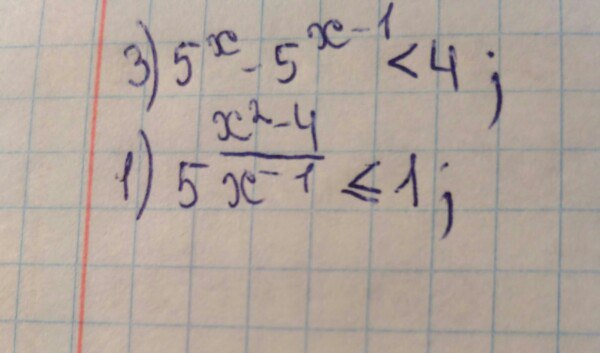 3) 5^{x} - 5^{x-1} < 4 ;
1) 5^{\frac{x^2-4}{x-1}} ≤ 1 ;